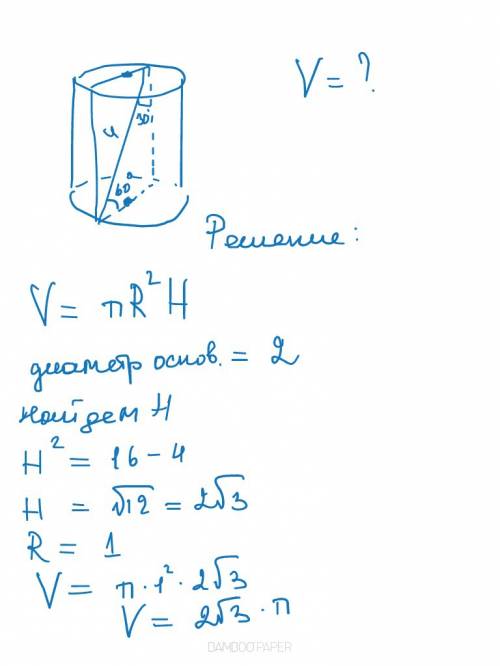 V = ?
30°
4
60°
Решение:
V = πR²H
диаметр основ. = 2
найдем H
H² = 16 - 4
H = √12 = 2√3
R = 1
V = π · 1² · 2√3
V = 2√3 · π
BAMBOOPAPER